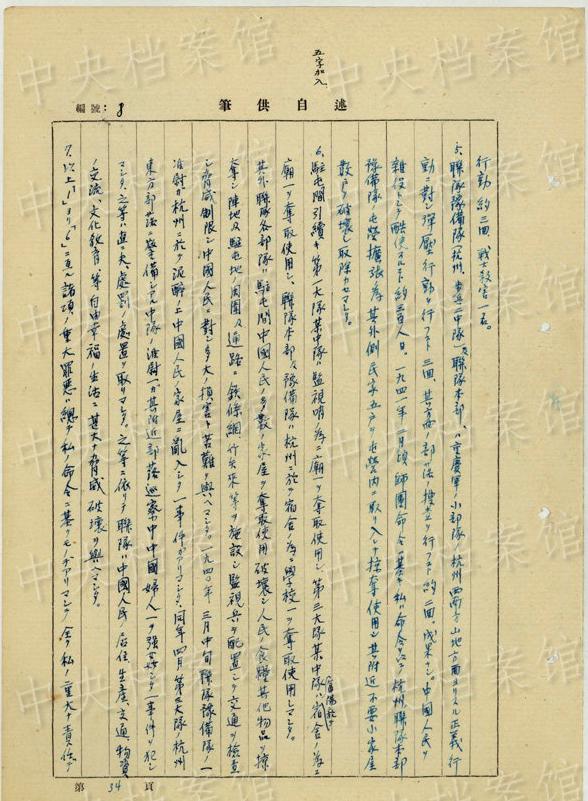 五字加入
編號：8
述自供筆
行動約三回、戦士殺害一名。
5、聯隊豫備隊（杭州、歩兵二中隊）及聯隊本部ハ重慶軍ノ小部隊ノ杭州西南方山地方面ヨリスル正義行
動ニ対シ弾圧行動ヲ行フコト三回、其方面ノ部落ノ捜索ヲ行フコト約二回。成果ナシ。中国人民ヲ
雑役トシテ酷使スルコト約三百人日。一九四一年二月頃師團命令ニ基キ私ハ命令シテ杭州聯隊本部
豫備隊ノ屯営擴張ノ為其外側民家五戸ヲ屯営内ニ取リ入レテ掠奪使用シ其附近不要小家屋
数戸ヲ破壊シ取除カセマシタ。
6、駐屯間引続キ第一大隊某中隊ハ監視哨ノ為ニ廟一ヲ奪取使用シ、第三大隊某中隊ハ宿舎ノ為ニ
（富陽縣）
廟一ヲ奪取使用シ、聯隊本部及豫備隊ハ杭州ニ於テ宿舎ノ為ニ学校一ヲ奪取使用シマシタ。
其外聯隊各部隊ハ駐屯間中国人民ノ多数ノ家屋ヲ奪取使用破壊シ人民ノ食糧其他物品ヲ掠
奪シ陣地及駐屯地ノ周囲及通路ニ鉄條網竹矢來等ヲ施設シ監視兵ヲ配置シテ交通ヲ檢査
シ脅威制限シ中国人民ニ対シ多大ノ損害ト苦難ヲ與ヘマシタ。一九四〇年三月中旬聯隊豫備隊ノ一
准尉ガ杭州ニ於テ泥酔ノ上中国人民ノ家屋ニ亂入シタ一事件ガアリマシタ。同年四月第三大隊ノ杭州
東方部落ニ警備シアル中隊ノ准尉一ガ其附近部落巡察中中国婦人一ヲ強姦シタ一事件ヲ犯シ
マシタ。之等ニハ直ニ夫々處罰ノ處置ヲ取リマシタ。之等ニ依リテ聯隊ハ中国人民ノ居住、生産、交通、物資
ノ交流、文化教育、等自由幸福ノ生活ニ甚大ナ脅威破壊ヲ與ヘマシタ。
7、以上「1」ヨリ「6」ニ至ル諸項ノ重大罪悪ハ總テ私ノ命令ニ基クモノデアリマシテ全ク私ノ重大ナ責任デ
第34頁
中央档案馆